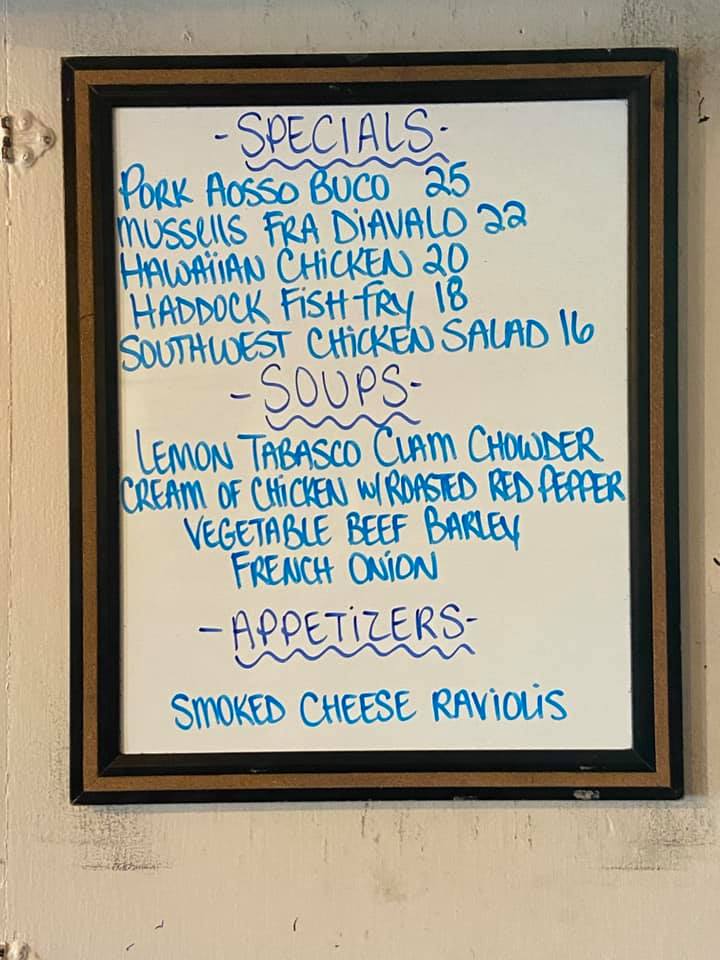 -SPECIALS-
PORK AOSSO BUCO 25
MUSSELLS FRA DIAVALO 22
HAWAIIAN CHICKEN 20
HADDOCK FISH FRY 18
SOUTHWEST CHICKEN SALAD 16
-SOUPS-
LEMON TABASCO CLAM CHOWDER
CREAM OF CHICKEN W/ ROASTED RED PEPPER
VEGETABLE BEEF BARLEY
FRENCH ONION
-APPETIZERS-
SMOKED CHEESE RAVIOLIS